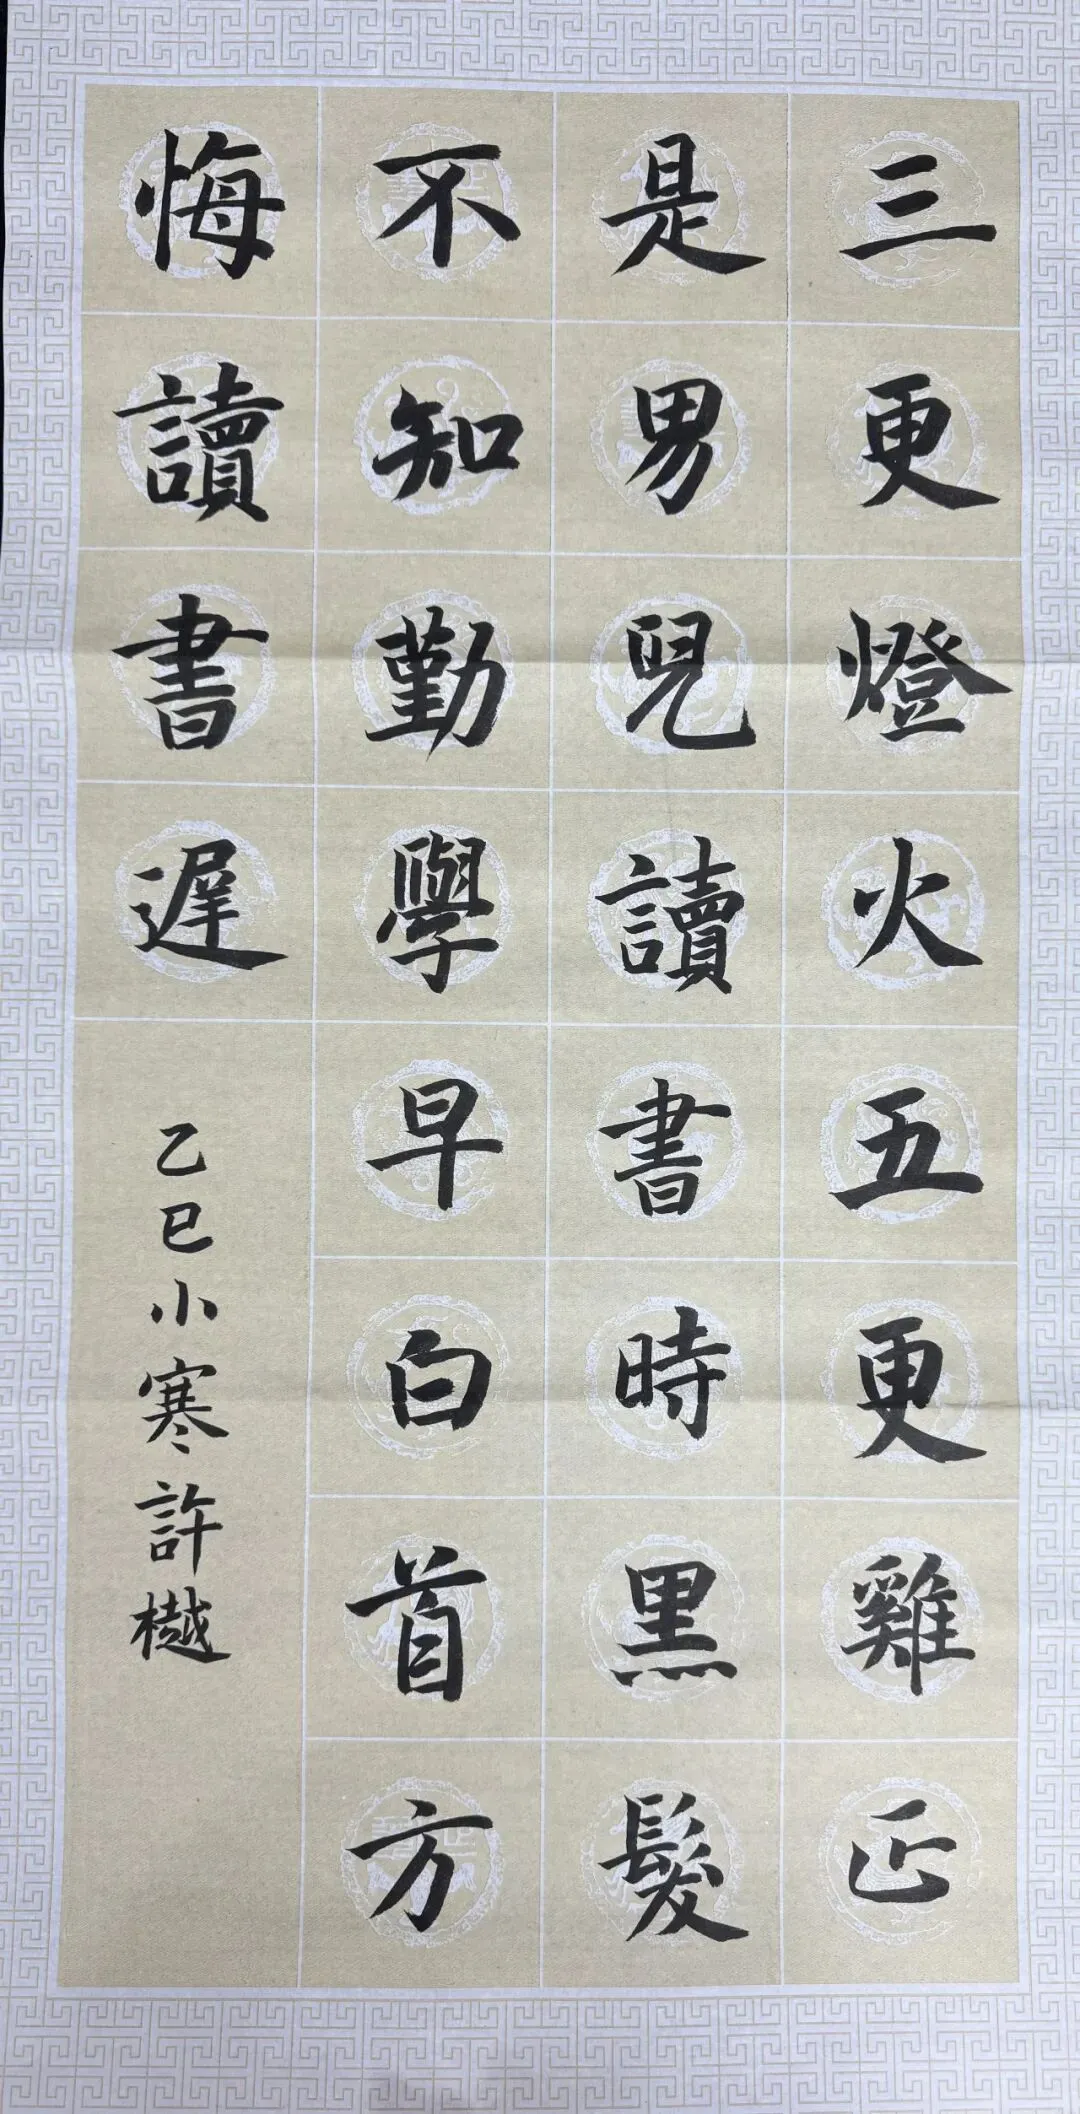 三更燈火五更雞正
是男兒讀書時黑髮
不知勤學早白首方
悔讀書遲
乙巳小寒許樾